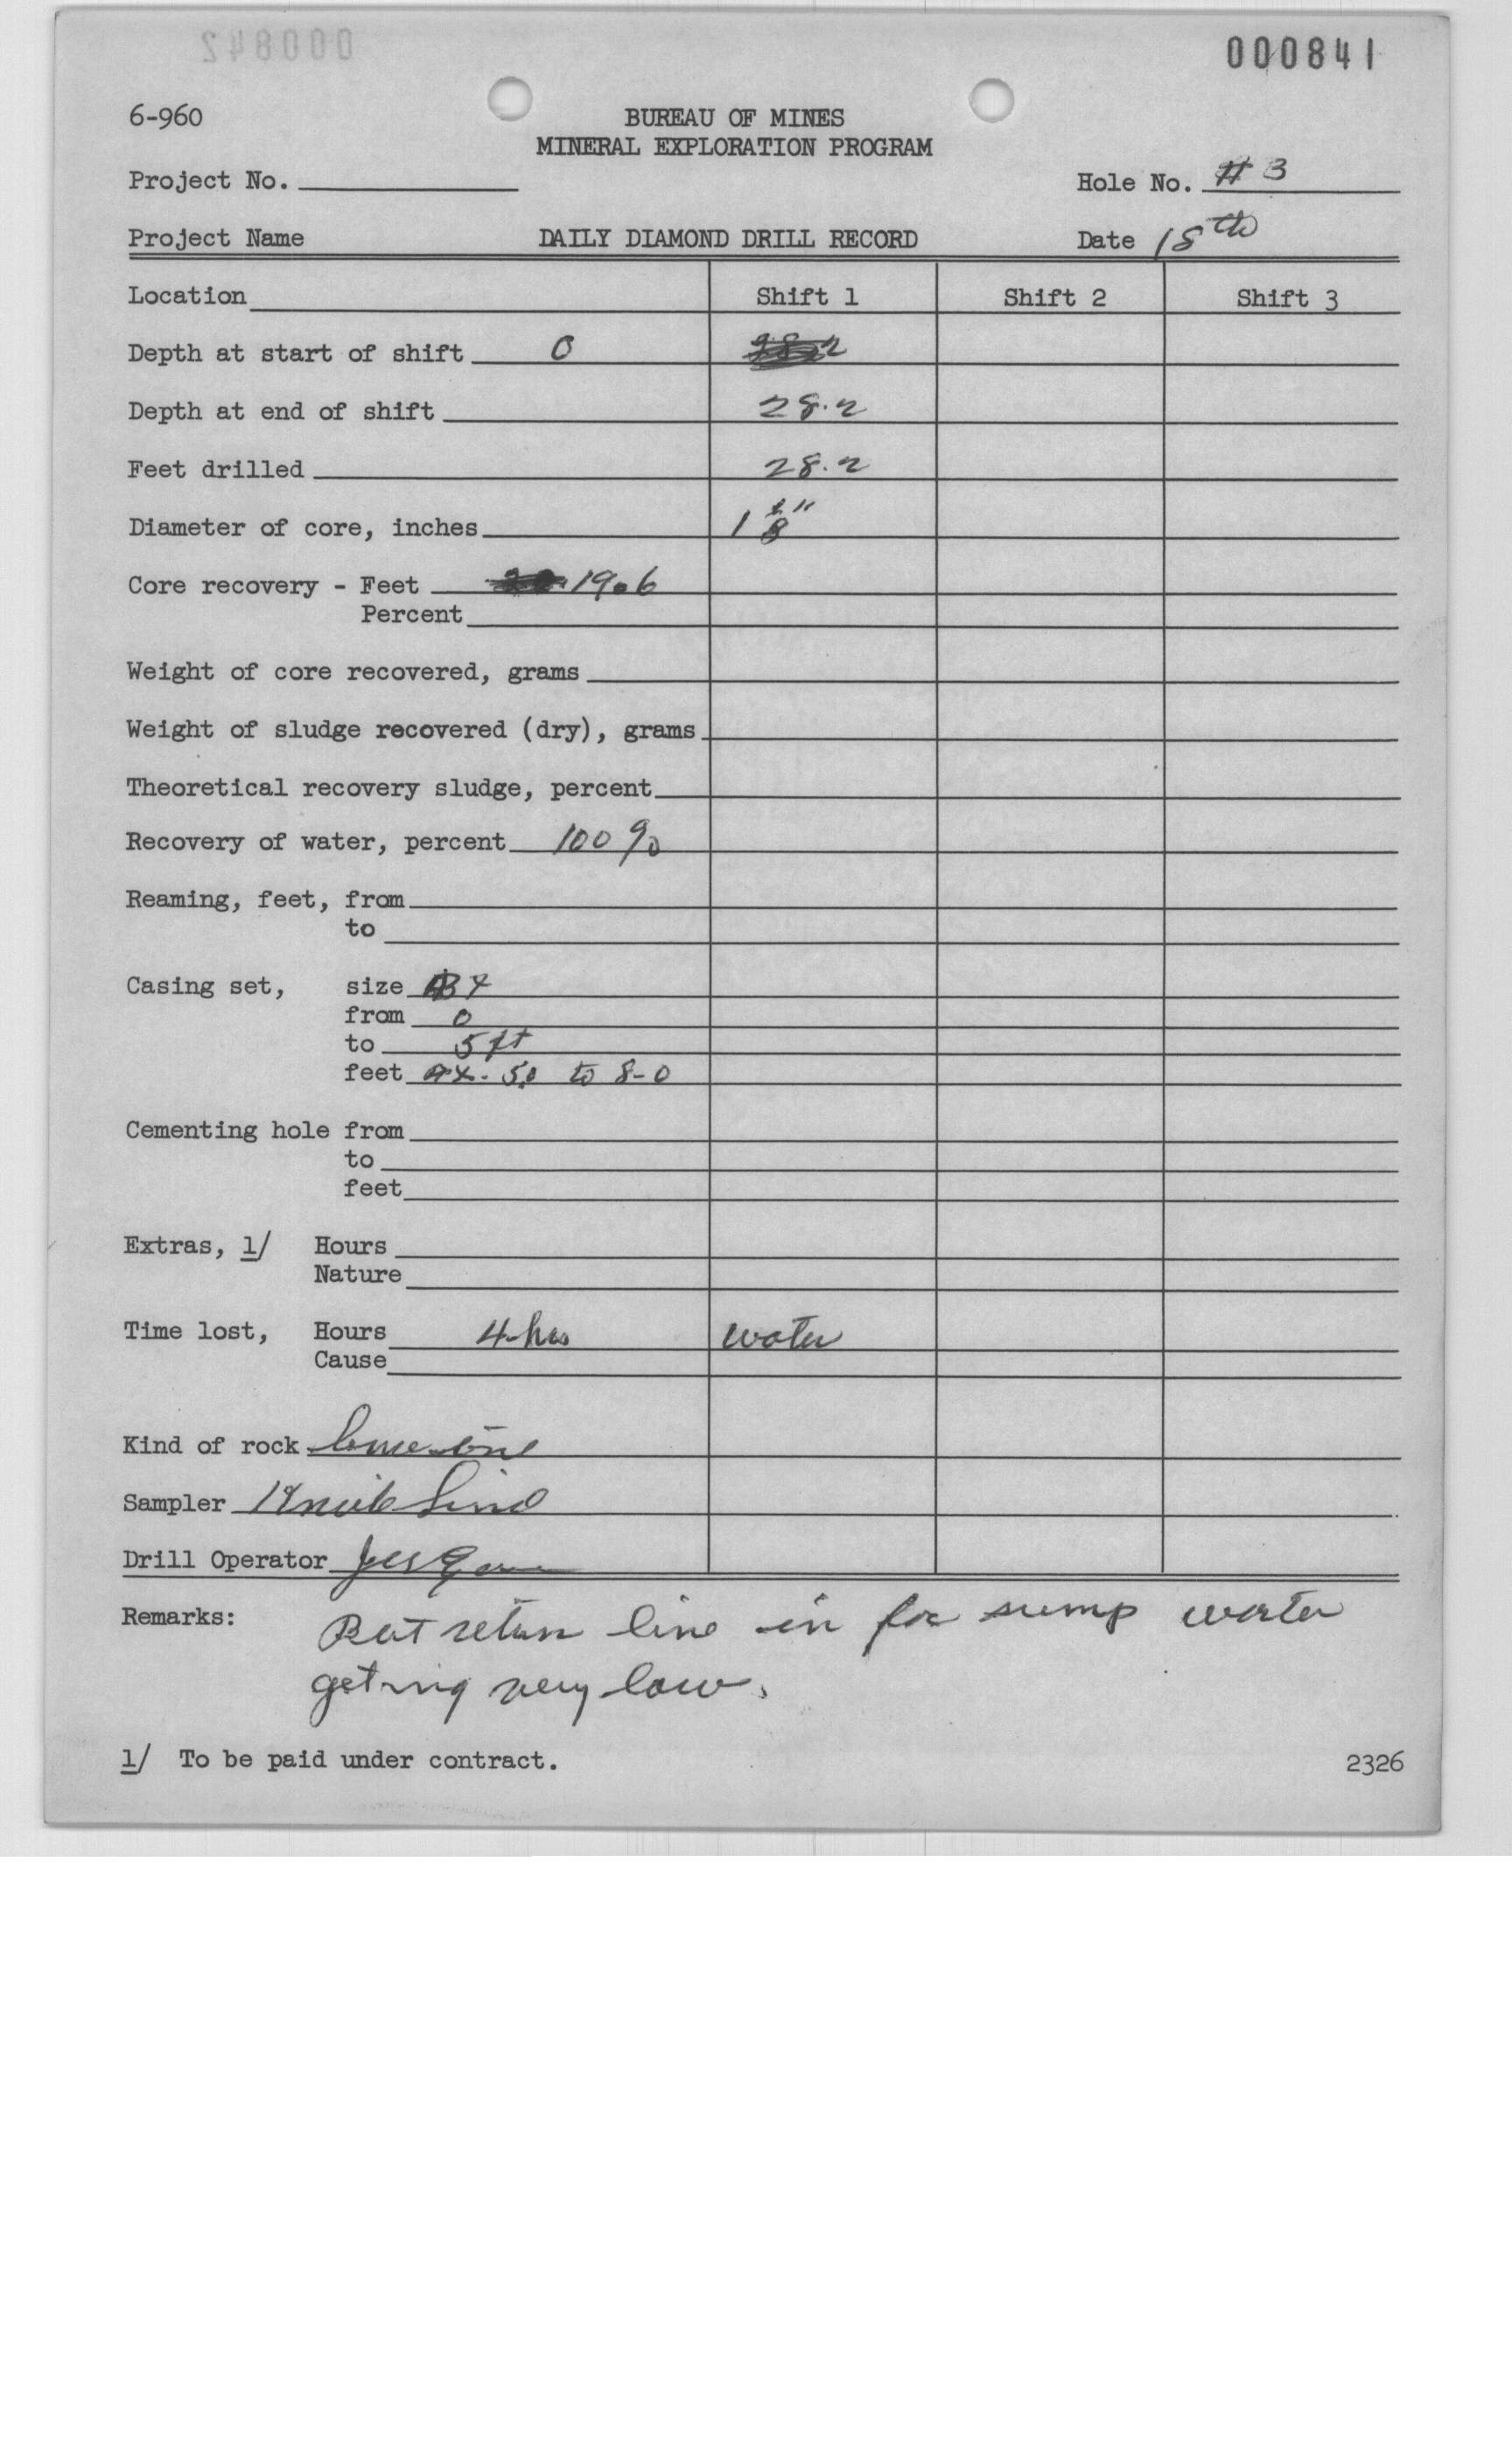 000841
6-960
BUREAU OF MINES
MINERAL EXPLORATION PROGRAM
Project No.
Hole No. # 3
Project Name DAILY DIAMOND DRILL RECORD Date 18th
Location Shift 1 Shift 2 Shift 3
Depth at start of shift 0
Depth at end of shift 28.2
Feet drilled 28.2
Diameter of core, inches 1 1/8"
Core recovery - Feet 19.6
Percent
Weight of core recovered, grams
Weight of sludge recovered (dry), grams
Theoretical recovery sludge, percent
Recovery of water, percent 100 %
Reaming, feet, from
to
Casing set, size BX
from 0
to 5 ft
feet AX - 5.0 to 8-0
Cementing hole from
to
feet
Extras, 1/ Hours
Nature
Time lost, Hours 4-hrs water
Cause
Kind of rock
Sampler
Drill Operator
Remarks: Put return line in for sump water
geting very low.
1/ To be paid under contract.
2326